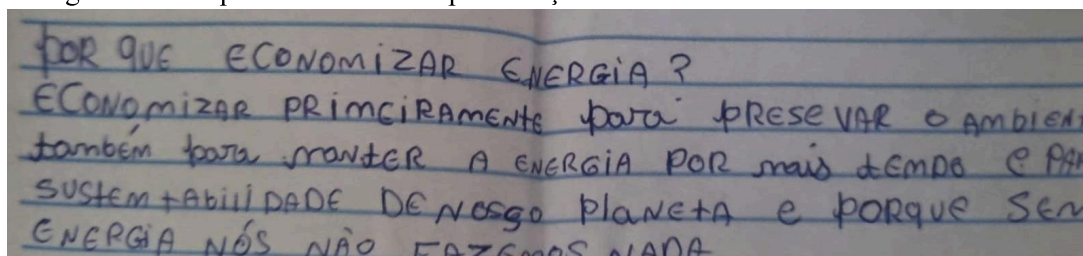 POR QUE ECONOMIZAR ENERGIA?
ECONOMIZAR PRIMEIRAMENTE para PRESEVAR O AMBIEN
também para manter A ENERGIA POR mais tempo e PAR
SUSTEMTABILIDADE DE NOSSO PLANETA e PORQUE SEN
ENERGIA NÓS NÃO FAZEMOS NADA